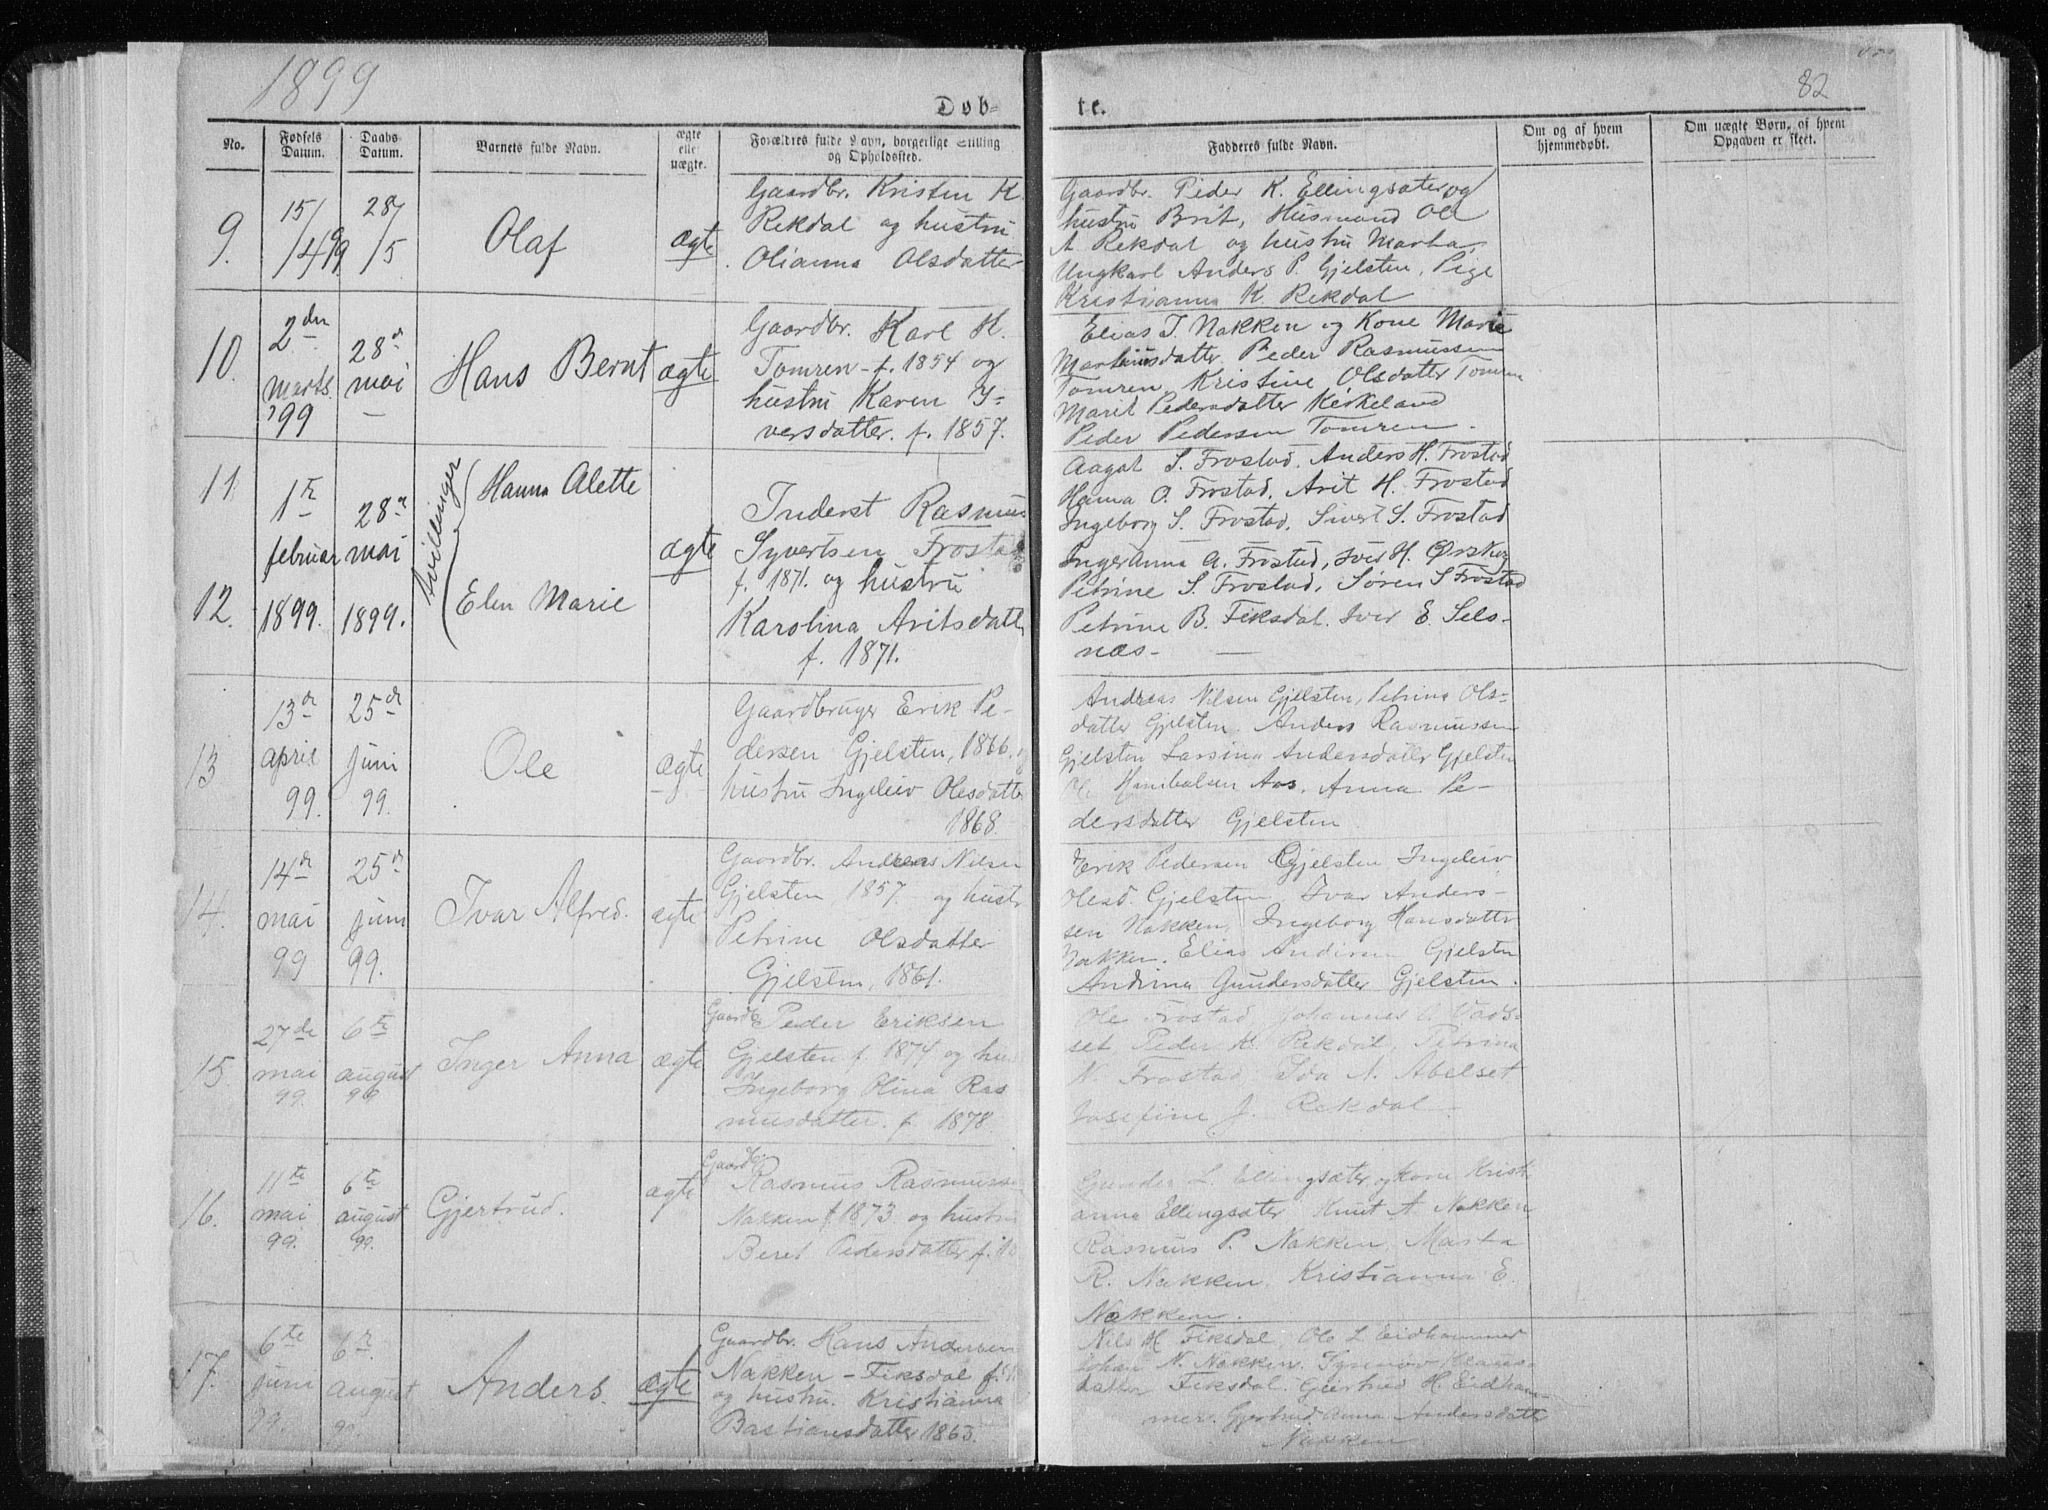 1899
82
Døb-
te.
No.
Fødsels
Datum.
Daabs
Datum.
Barnets fulde Navn.
ægte
elle
uægte.
Forældres fulde Navn, borgerlige Stilling
og Opholdssted.
Fadderes fulde Navn.
Om og af hvem
hjemmedøbt.
Om uægte Børn, af hvem
Opgaven er skeet.
9.
15/
/4 99
28/
/5
Olaf
ægte
Gaardbr. Kristen K.
Rekdal og hustru
Olianna Olsdatter
Gaardbr. Peder K. Ellingsæter og
hustru Brit, Husmand Ole
A Rekdal og hustru Marta,
Ungkarl Anders P. Gjelsten, Pige
Kristianna K. Rekdal
10.
2den
Marts
99
28de
mai
Hans Bernt
ægte
Gaardbr. Karl H.
Tomren f. 1854 og
hustru Karen I-
versdatter. f. 1857.
Elias J. Nakken og Kone Marie
Martinusdatter Peder Rasmussen
Tomren Kristine Olsdatter Tomren
Marit Pedersdatter Kirkeland
Peder Pedersen Tomren.
11.
12.
1te
februar
1899.
28de
mai
1899.
tvillinger
Hanna Alette
Elen Marie
ægte
Inderst Rasmus
Syvertsen Frostad
f. 1871. og hustru
Karolina Aritsdatter
f. 1871.
Aagot S. Frostad, Anders H. Frostad
Hanna O. Frostad, Arit H. Frostad
Ingeborg S. Frostad, Sivert S. Frostad
Ingeranna A. Frostad, Iver H. Ørskog
Petrine S. Frostad, Søren S Frostad
Petrine B. Fiksdal. Iver E. Sels-
næs -
13
13de
april
99.
25de
juni
99.
Ole
ægte
Gaardbruger Erik Pe-
dersen Gjelsten, 1866. og
hustru Ingeleiv Olesdatter
1868.
Andreas Nilsen Gjelsten, Petrina Ols-
datter Gjelsten, Anders Rasmussen
Gjelsten Larsina Andersdatter Gjelsten
Ole Hanibalsen Aas, Anna Pe-
dersdatter Gjelsten
14.
14de
mai
99
25de
juni
99.
Ivar Alfred.
ægte
Gaardbr. Andreas Nilsen
Gjelsten, 1857. og hustr
Petrine Olsdatter
Gjelsten, 1861.
Erik Pedersen Gjelsten Ingeleiv
Olesd. Gjelsten, Ivar Anders-
sen Nakken, Ingeborg Hansdatter
Nakken. Elias Gjelsten
Andrina Gundersdatter Gjelsten.
15.
27de
mai
99.
6te
august
99
Inger Anna
ægte
Gaardb Peder Eriksen
Gjelsten f. 1874 og hus
Ingeborg Olina Ras
musdatter. f. 1878
Ole Frostad Johannes O. Vads-
set Peder K. Rekdal, Petrina
N. Frostad Ida N. Abelset
Josefine J. Rekdal -
16.
11te
mai
99.
6te
august
99.
Gjertrud.
ægte
Gaardb.
Rasmus Rasmussen
Nakken f 1873 og hustru
Beret Pedersdatter f. 18
Gunder L. Ellingsæter og kone Krist-
anna Ellingsæter Knut A. Nakken
Rasmus P. Nakken, Marta
R. Nakken, Kristianna E.
Nakken.
17.
6te
juni
99.
6te
august
99
Anders.
ægte
Gaardbr. Hans Andersen
Nakken - Fiksdal f.
og hustru. Kristianna
Bastiansdatter 1863.
Nils H Fiksdal, Ole L Eidhammer
Johan N. Nakken. Synnøv Klaus-
datter Fiksdal. Gjertrud H. Eidham-
mer. Gjertrud Anna Andersdatter
Nakken